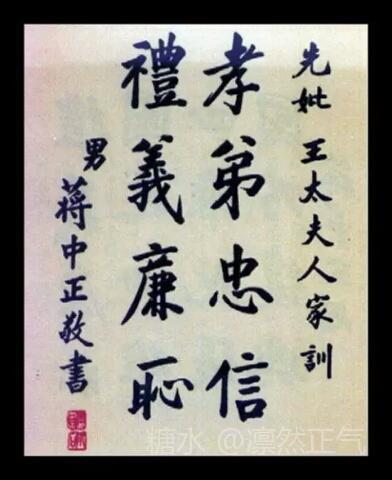 先妣王太夫人家訓
孝弟忠信
禮義廉恥
男蔣中正敬書
糖水 @凛然正气